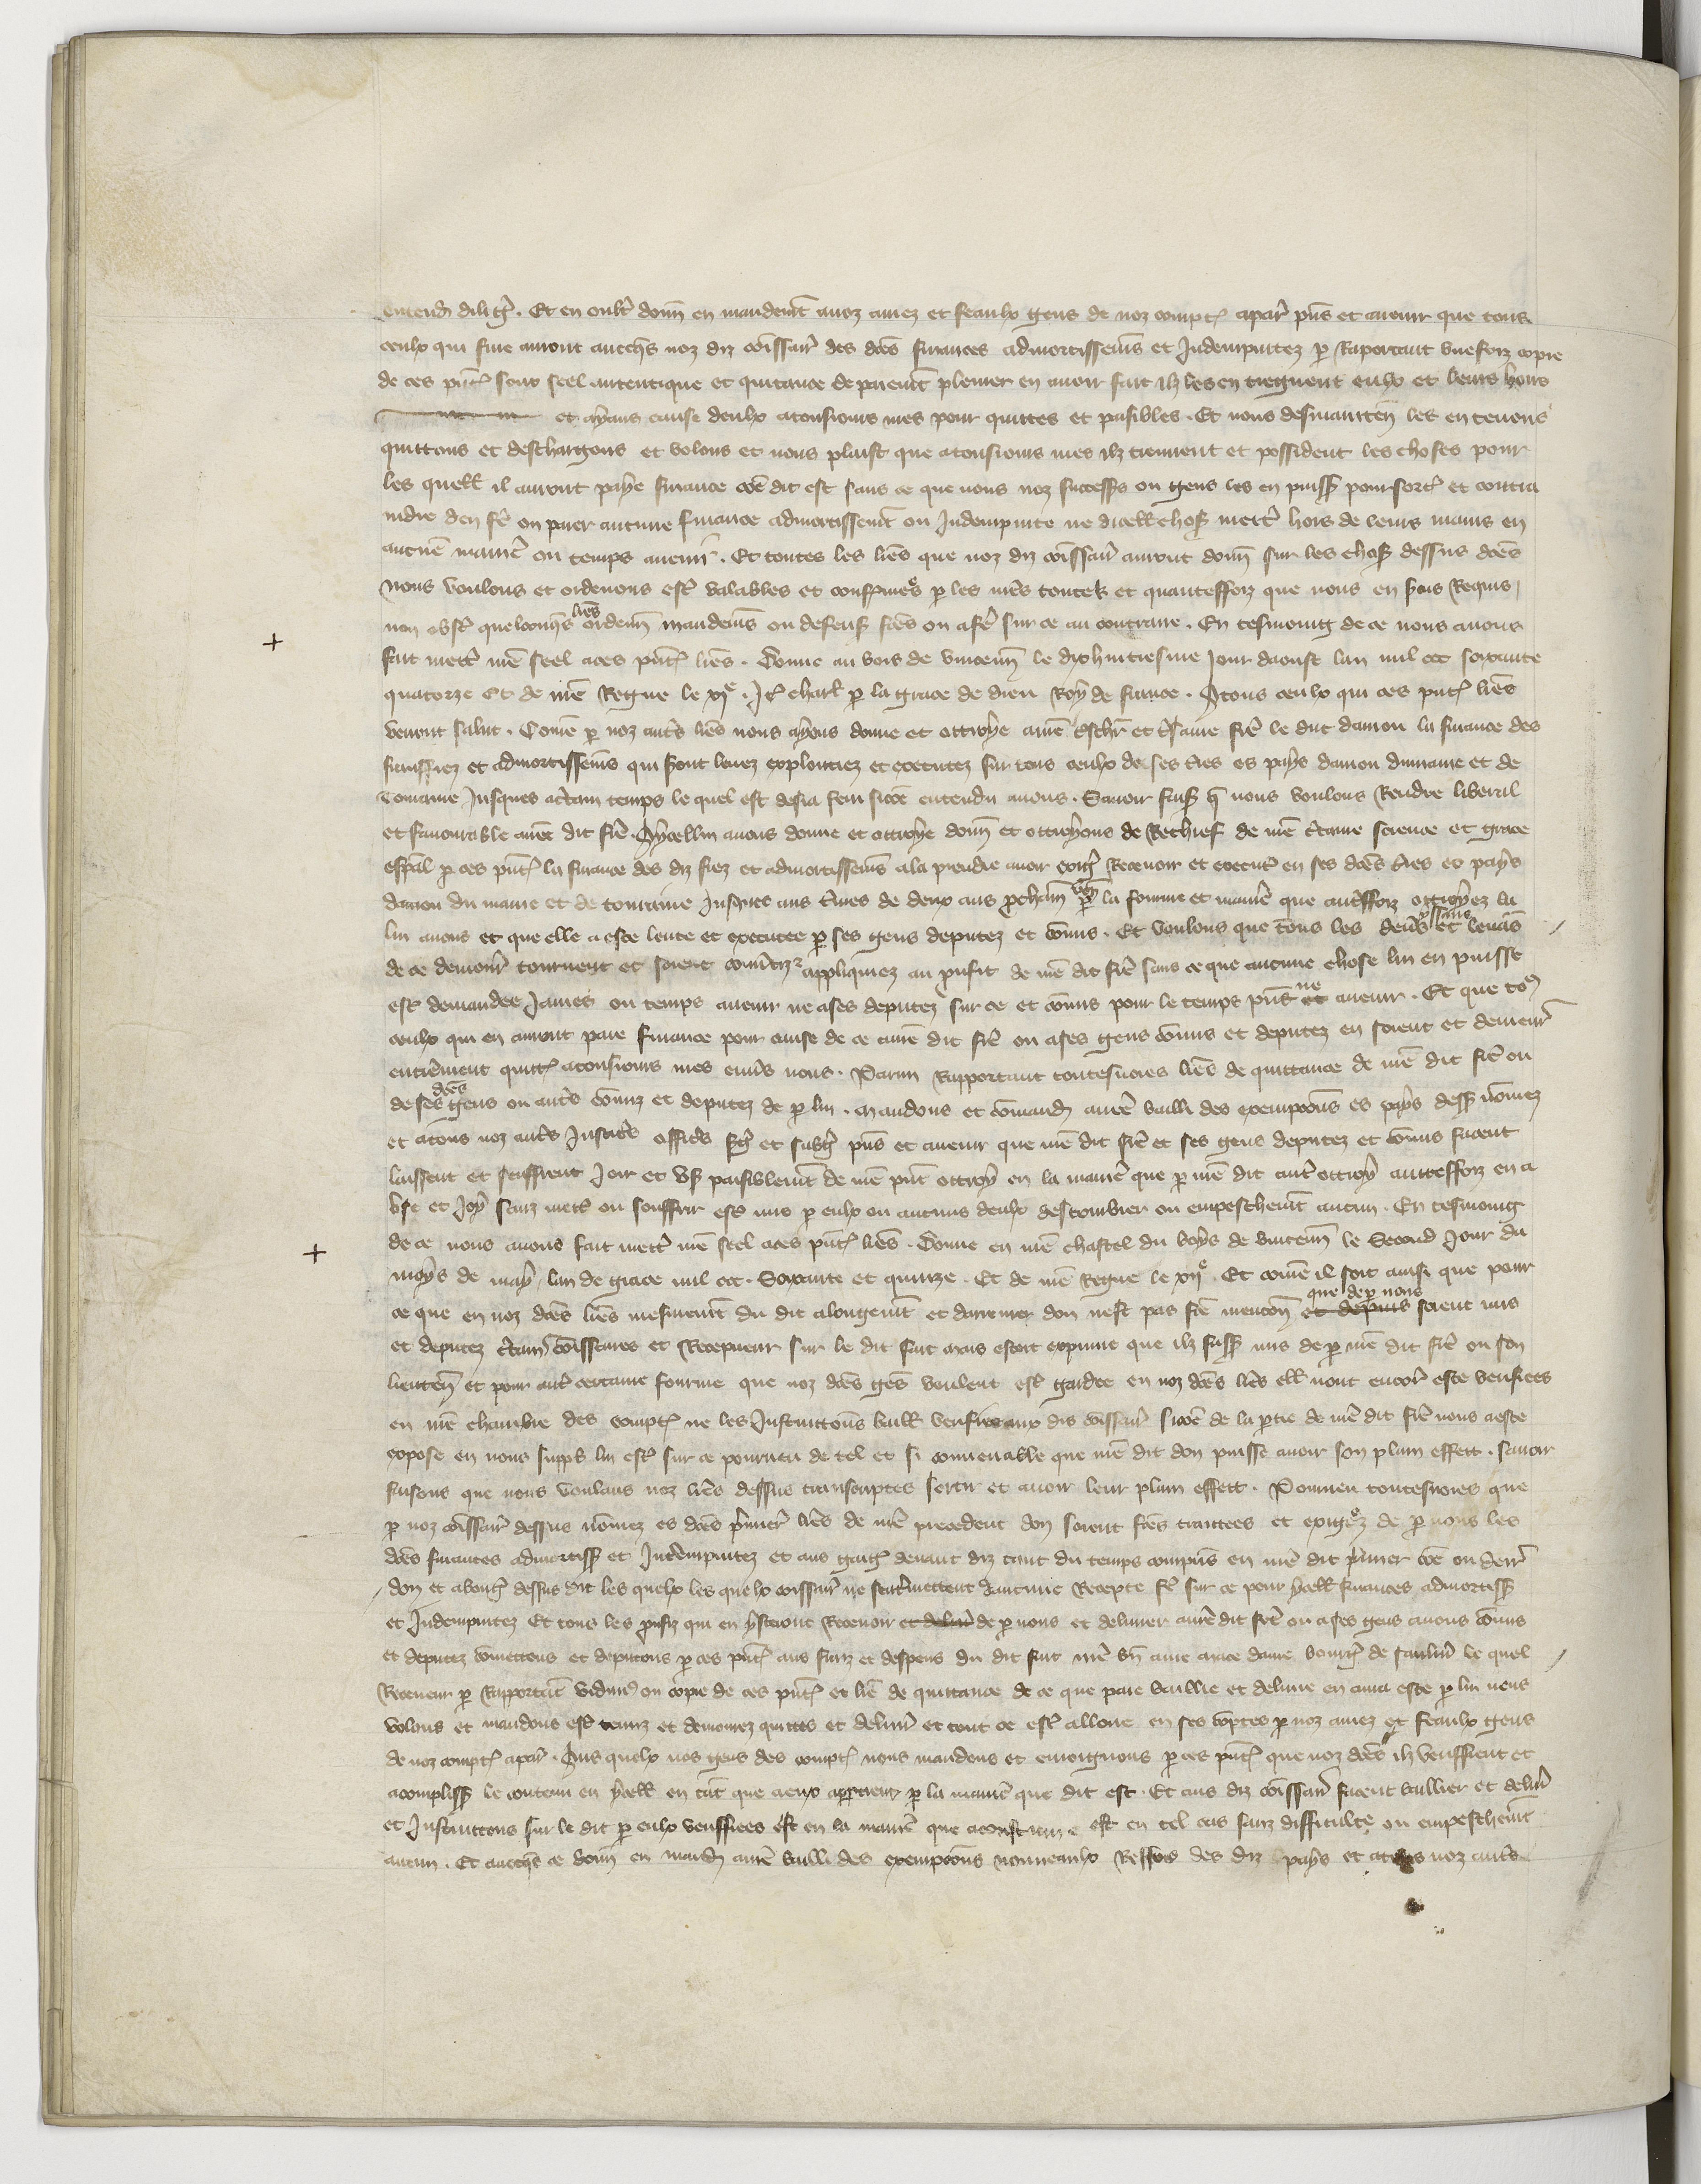 entendre dilig̃. Et en oultr̃ donñ en mandem̃t a noz amez et feaulx gens de noz compt̃ a par̃ p̃ns et avenir que tous
ceulx qui fine auront avecq̃s noz diz c̃oissair̃ des d̃ces finances admortissem̃s et Indempnitez p̱ Raportant une foiz copie
de ces p̃nt̃ souz seel autentique et quitance de paiem̃t plenier en avoir fait ilz les en tiegnent eulx et leurs hoirs
et ayans cause deulx a tousiours mes pour quittes et paisibles. Et nous desmainten̄ les en tenons
quittons et deschargons et volons et nous plaist que a tousiours mes ilz tiennent et possident les choses pour
les quell̃ il auront paye finance c̃õe dit est sans ce que nous noz success̃s ou gens les en puiss̃ poursort̃ et contra
indre den fe᷑ ou paier aucune finance admortissem̃t ou Indempnite ne dicell̃ chos̃ mettr̃ hors de leurs mains en
aucune manir̃ ou temps avenir. Et toutes les l̃res que noz diz c̃oissair̃ auront donñ sur les chos̃ dessus d̃ces
nous voulons et ordenons est̃ valables et confermees p̱ les n̄res toutez et quanteffoiz que nous en s̃ons Requis,
non obst̃ quelconq̃s l̃res ordenñ mandem̃s ou defens̃ f̃ces ou a fe᷑ sur ce au contraire. En tesmoing de ce nous avons
fait mettr̃ n̄re seel a ces p̃nt̃ l̃res. Donne au bois de vincenñ le dixhuitiesme Jour daoust lan mil ccc soixante
quatorze et de n̄re Regne le xjᵉ. It̃ charl̃ p̱ la grace de dieu Roy de france. A tous ceulx qui ces p̃nt̃ l̃res
verront salut. Comme p̱ noz aut̃s l̃res nous ayons donne et ottroye a n̄re t̃schr̃ et t̃same fr̃e le duc danjou la finance des
franffiez et admortissem̃s qui s̃ont levez exploitiez et executez sur tous ceulx de ses t̃res es pays danjou du maine et de
Touraine Jusques a c̃tain temps le quel est desia feni si c̃õe entendu avons. Savoir fais̃ q̃ nous voulons Rendre liberal
et favourable a n̄re dit fr̃e. Aycellui avons donne et ottroye donñ et ottroyons de Rechief de n̄re c̃taine science et grace
esp̃al p̱ ces p̃nt̃ la finance des diz fiez et admortissem̃s a la prendre avoir exig̃ Recevoir et execut̃ en ses d̃ces t̃res et pays
danjou du maine et de touraine Jusques aus t̃mes de deux ans p̱chain ven̄ p̱ la fourme et manir̃ que aut̃ffoiz ottroyez la
lui avons et que elle a este levee et executee p̱ ses gens deputez et c̃omis. Et voulons que tous les den̄rs yssans et levans
de ce demour̃ tournent et soient conv̄tiz ⁊ appliquiez au p̱ufit de n̄re dit fr̃e sans ce que aucune chose lui en puisse
est̃ demandee Jamez ou temps avenir ne a ses deputez sur ce et c̃omis pour le temps p̃nt ne avenir. Et que to᷒
ceulx qui en auront paie finance pour cause de ce a n̄re dit fr̃e ou a ses gens c̃omis et deputez en soient et demeur̃
entierement quitt̃ a tousiours mes env̄s nous. Parmi Rapportant toutesvoies l̃res de quittance de n̄re dit fr̃e ou
de ses d̃ces gens ou aut̃s c̃omiz et deputez de p̱ lui. Mandons et c̃omand̃ a n̄re bailli des exempcions es pays dess̃ nõmez
et a tous noz aut̃s Justic̃ offic̃s s̃g̃ et subg̃ p̃ns et avenir que n̄re dit fr̃e et ses gens deputez et c̃omis facent
laissent et seuffrent Joir et us̃ paisiblem̃t de n̄re p̃nt ottroy en la manir̃ que p̱ n̄re dit aut̃ ottroy autreffoiz en a
use et Joy sanz mett̃ ou souffrir est̃ mis p̱ eulx ou aucuns deulx destourbier ou empeschem̃t aucun. En tesmoing
de ce nous avons fait mettr̃ n̄re seel a ces p̃nt̃ l̃res. Donne en n̄re chastel du boys de vincenñ le Second Jour du
moys de may lan de grace mil ccc. Soixante et quinze. Et de n̄re Regne le xijᵉ. Et comme il soit ainsi que pour
ce que en noz d̃ces l̃res mesmem̃t du dit alongem̃t et darrenier don nest pas f̃ce mencoñ et depuis que de p̱ nous soient mis
et deputez c̃tains c̃oissaires et Recepveur sur le dit fait mais estoit exprime que ilz fuss̃ mis de p̱ n̄re dit fr̃e ou son
lieuten̄ et pour aut̃ certaine fourme que noz d̃ces gens veulent est̃ gardee en noz d̃ces l̃res ell̃ nont encor̃ este verifiees
en n̄re chambre des compt̃ ne les Instruttions baill̃ verifiees aux dis c̃oissair̃ si c̃õe de la p̱tie de n̄re dit fr̃e nous a este
expose en nous suppl̃ lui est̃ sur ce pourveu de tel et si convenable que n̄re dit don puisse avoir son plain effett. Savoir
faisons que nous voulans noz l̃res dessus transcriptes sortir et avoir leur plain effett. Pourveu toutesvoies que
p̱ noz c̃oissair̃ dessus nõmez es d̃ces p̱mier̃ l̃res de n̄re precedent don soient f̃ces traittees et exigees de p̱ nous les
d̃ces finances admortiss̃ et Indempnitez et aus gaig̃ devant diz tant du temps compris en n̄re dit p̱mier c̃õe ou derr̃
don et aloig̃ dessus dit les quelx les quelx c̃oissair̃ ne sentremettent daucune Recepte fe᷑ sur ce pour ycell̃ finances admortiss̃
et Indempnitez Et tous les p̱ufiz qui en ysteront Recevoir et delivr̃ de p̱ nous et delivrer a n̄re dit fr̃e ou a ses gens avons c̃omis
et deputez c̃omettons et deputons p̱ ces p̃nt̃ aus fraiz et despens du dit fait n̄re bñ ame mace dame bourg̃ de saulm̃ le quel
Receveur p̱ Rapportãt vidim᷒ ou copie de ces p̃nt̃ et l̃re de quittance de ce que paie baillie et delivre en aura este p̱ lui nous
volons et mandons est̃ tenuz et demourez quittes et delivr̃ et tout ce est̃ alloue en ses c̃optes p̱ noz amez et feaulx gens
de noz compt̃ a par̃. Aus quelx nos gens des compt̃ nous mandons et enjoignons p̱ ces p̃nt̃ que noz d̃ces l̃res ilz veriffient et
acompliss̃ le contenu en ycell̃ en tãt que a eux appartient p̱ la manir̃ que dit est. Et aus diz c̃oissair̃ facent baillier et delivr̃
et Instruttions sur le dit p̱ eulx veriffiees est en la manir̃ que acoustume est en tel cas sanz difficulte ou empeschem̃t
aucun. Et avecq̃s ce donñ en mand̃ a n̄re bailli des exempcions nouveaulx Ressors des diz pays et a tous noz aut̃s